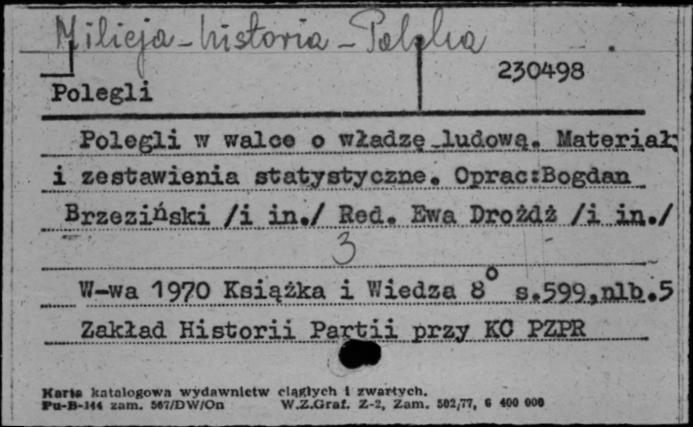 Milicja - historia - Polska
230498
Polegli
Polegli w walce o władzę ludową. Materiał
i zestawienia statystyczne. Oprac:Bogdan
Brzeziński /i in./ Red. Ewa Drożdż /i in./
3
W-wa 1970 Książka i Wiedza 8° s.599,nlb.5
Zakład Historii Partii przy KC PZPR
Karta katalogowa wydawnictw ciągłych i zwartych.
Pu-B-144 zam. 567/DW/On W.Z.Graf. Z-2, Zam. 502/77, 6 400 000